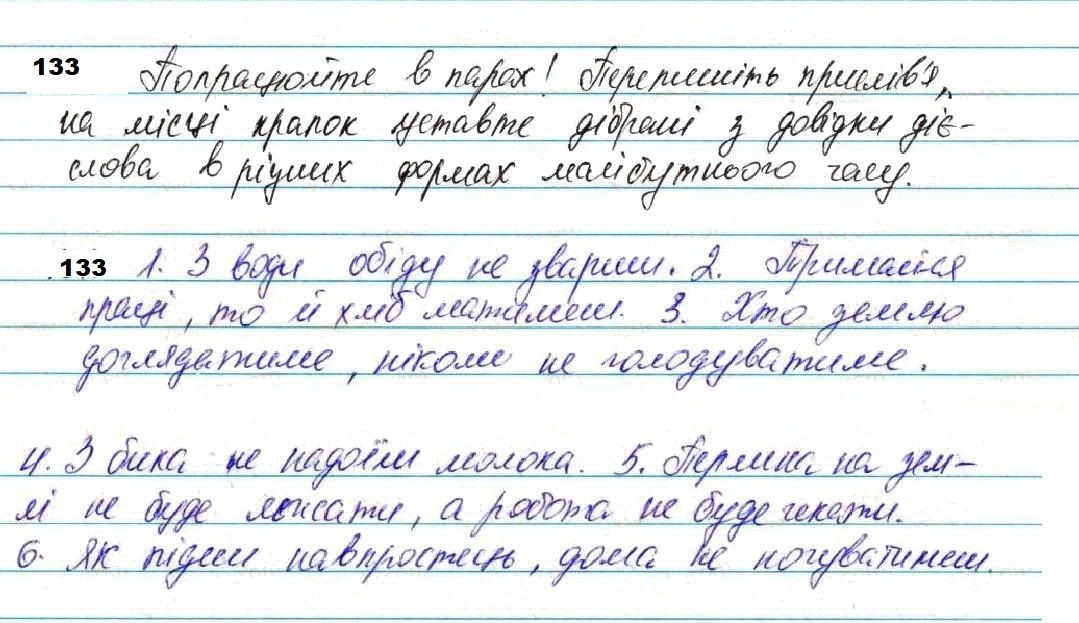 133 Попрацюйте в парах! Перепишіть прислів'я,
на місці крапок уставте дібрані з довідки діє-
слова в різних формах майбутнього часу.
133 1. З води обіду не звариш. 2. Тримайся
праці, то й хліб матимеш. 3. Хто землю
доглядатиме, ніколи не голодуватиме.
4. З бика не надоїш молока. 5. Перлина на зем-
лі не буде лежати, а робота не буде чекати.
6. Як підеш навпростець, дома не ночуватимеш.